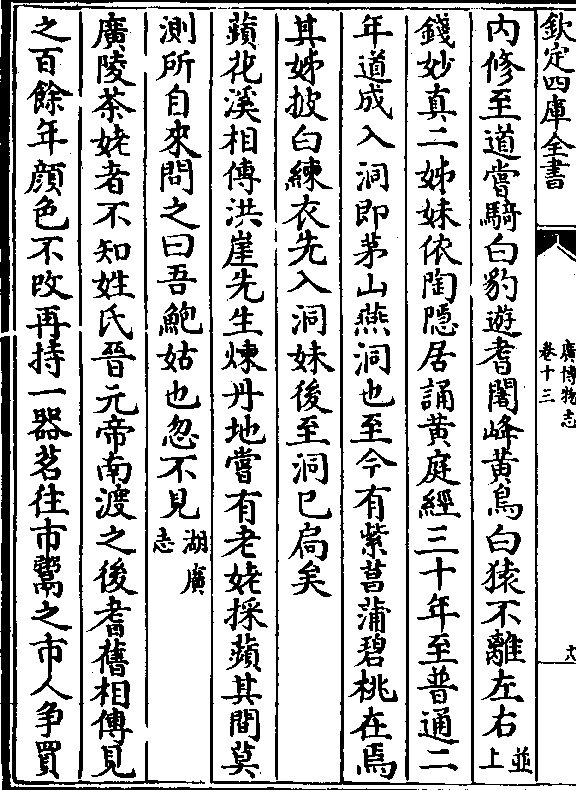 欽定四庫全書
廣博物志
卷十三
十八
内修至道嘗騎白豹遊耆闍峰黄鳥白猿不離左右並上
錢妙真二姊妹依陶隠居誦黄庭經三十年至普通二
年道成入洞即茅山燕洞也至今有紫菖蒲碧桃在焉
其姊披白練衣先入洞妹後至洞已扃矣
蘋花溪相傳洪崖先生煉丹地嘗有老姥採蘋其間莫
測所自來問之曰吾鮑姑也忽不見湖廣志
廣陵茶姥者不知姓氏晉元帝南渡之後耆舊相傳見
之百餘年顔色不改再持一器茗往市鬻之市人争買